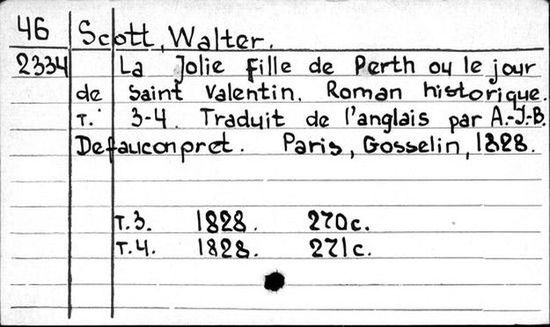 46 Scott, Walter.
2334 La Jolie fille de Perth ou le jour
de Saint Valentin. Roman historique.
T. 3-4. Traduit de l'anglais par A.-J.-B.
Defauconpret. Paris, Gosselin, 1828.
T.3. 1828. 270c.
T.4. 1828. 271c.